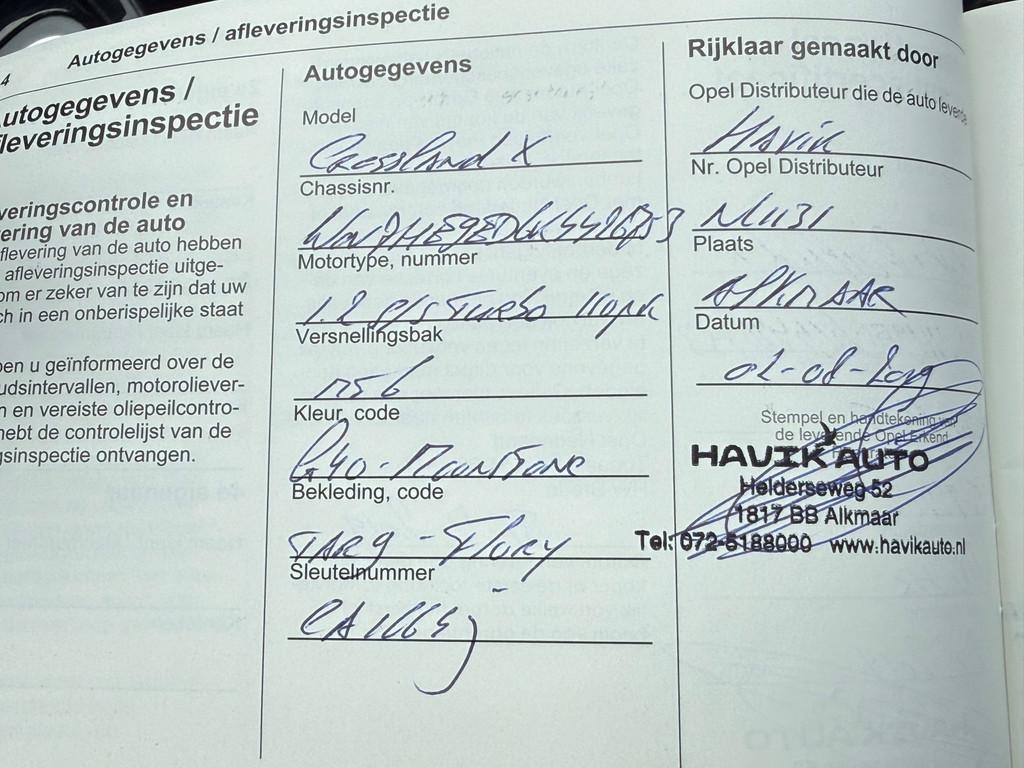 4
Autogegevens / afleveringsinspectie
utogegevens /
fleveringsinspectie
veringscontrole en
ering van de auto
flevering van de auto hebben
afleveringsinspectie uitge-
om er zeker van te zijn dat uw
ch in een onberispelijke staat
en u geïnformeerd over de
udsintervallen, motoroliever-
n en vereiste oliepeilcontro-
hebt de controlelijst van de
gsinspectie ontvangen.
Autogegevens
Model
Crossland X
Chassisnr.
Motortype, nummer
1.2 Turbo
Versnellingsbak
M56
Kleur, code
G40 - Moonstone
Bekleding, code
TARQ - Flory
Sleutelnummer
Rijklaar gemaakt door
Opel Distributeur die de auto levende
Havik
Nr. Opel Distributeur
N1131
Plaats
Alkmaar
Datum
Stempel en handtekening van
de leverende Opel Erkend
HAVIK AUTO
Helderseweg 52
1817 BB Alkmaar
Tel: 072-5188000 www.havikauto.nl